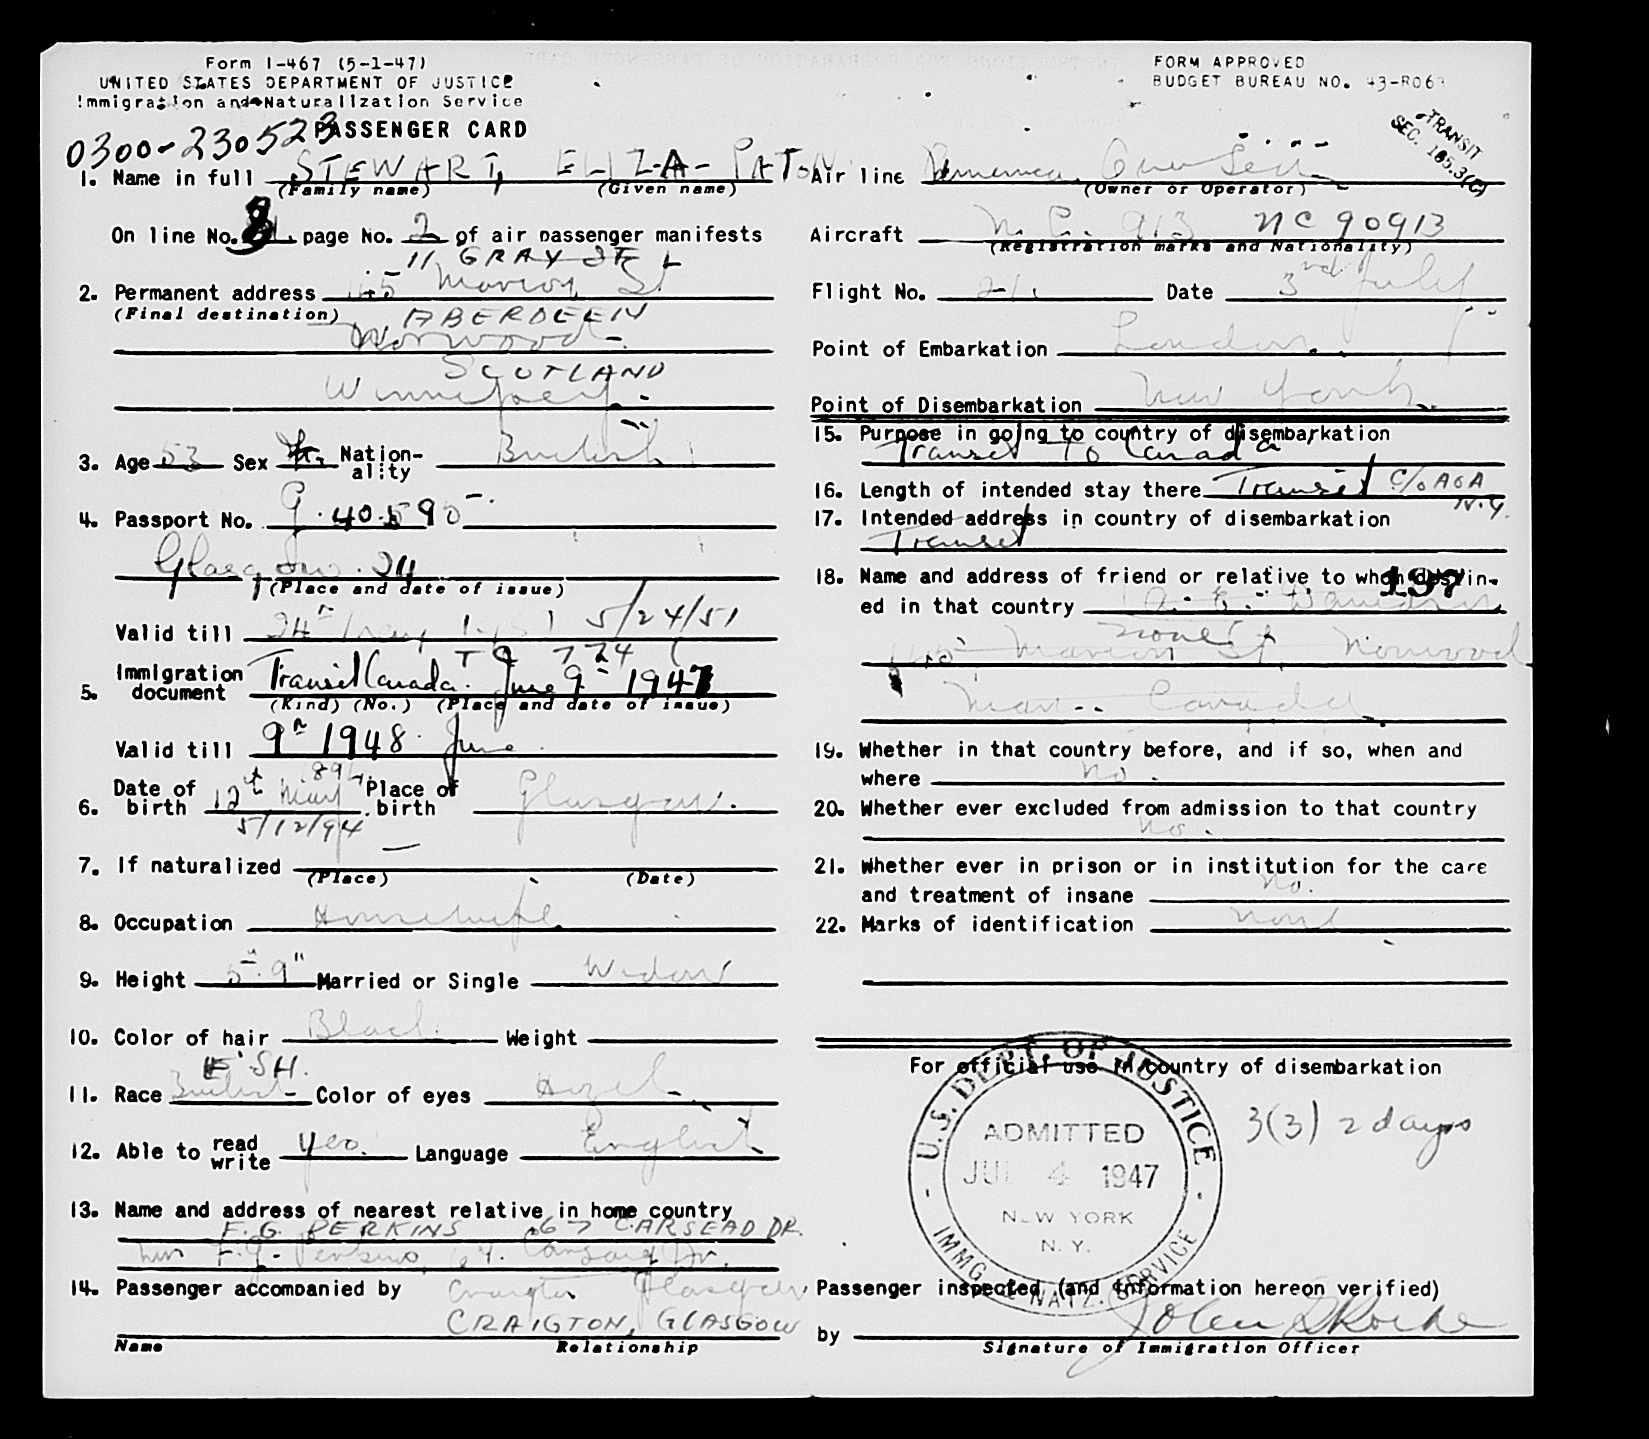 Form I-467 (5-1-47)
UNITED STATES DEPARTMENT OF JUSTICE
Immigration and Naturalization Service
PASSENGER CARD
0300-230523
FORM APPROVED
BUDGET BUREAU NO. 43-R063
TRANSIT
SEC. 165.3(C)
1. Name in full STEWART, ELIZA- PATON
(Family name) (Given name)
On line No. page No. 2 of air passenger manifests
11 GRAY ST
2. Permanent address 145 Marion St
(Final destination) ABERDEEN
Norwood
SCOTLAND
Winnipeg.
3. Age 53 Sex F. Nation-ality British
4. Passport No. 40590
Glasgow. 24
(Place and date of issue)
Valid till 24th May 1951 5/24/51
5. Immigration document Transit Canada. June 9 1947
(Kind) (No.) (Place and date of issue)
Valid till 9th 1948 June
6. Date of birth 12th May 894 Place of birth Glasgow.
5/12/94
7. If naturalized —
(Place) (Date)
8. Occupation Housewife.
9. Height 5'.9" Married or Single Widow
10. Color of hair Black Weight
E'SH.
11. Race British Color of eyes Hazel
12. Able to read write Yes. Language English
13. Name and address of nearest relative in home country
F.G. PERKINS 67 CARSEAD DR.
F.G. Perkins, 67. Dr.
14. Passenger accompanied by Craigton Glasgow
CRAIGTON, GLASGOW
Name Relationship
Air line American Overseas
(Owner or Operator)
Aircraft N.C. 913 NC 90913
(Registration marks and Nationality)
Flight No. Date 3rd July
Point of Embarkation London.
Point of Disembarkation New York.
15. Purpose in going to country of disembarkation
Transit to Canada
16. Length of intended stay there Transit C/o AOA
N.Y.
17. Intended address in country of disembarkation
Transit
18. Name and address of friend or relative to whom destin-
197
ed in that country
none
145 Marion St, Norwood
Man.. Canada.
19. Whether in that country before, and if so, when and
where No.
20. Whether ever excluded from admission to that country
No.
21. Whether ever in prison or in institution for the care
and treatment of insane No.
22. Marks of identification None
For official use in country of disembarkation
U.S. DEPT. OF JUSTICE
ADMITTED
JUL 4 1947
NEW YORK
N.Y.
IMMIG. & NATZ. SERVICE
3(3) 2 days
Passenger inspected (and information hereon verified)
by John
Signature of Immigration Officer